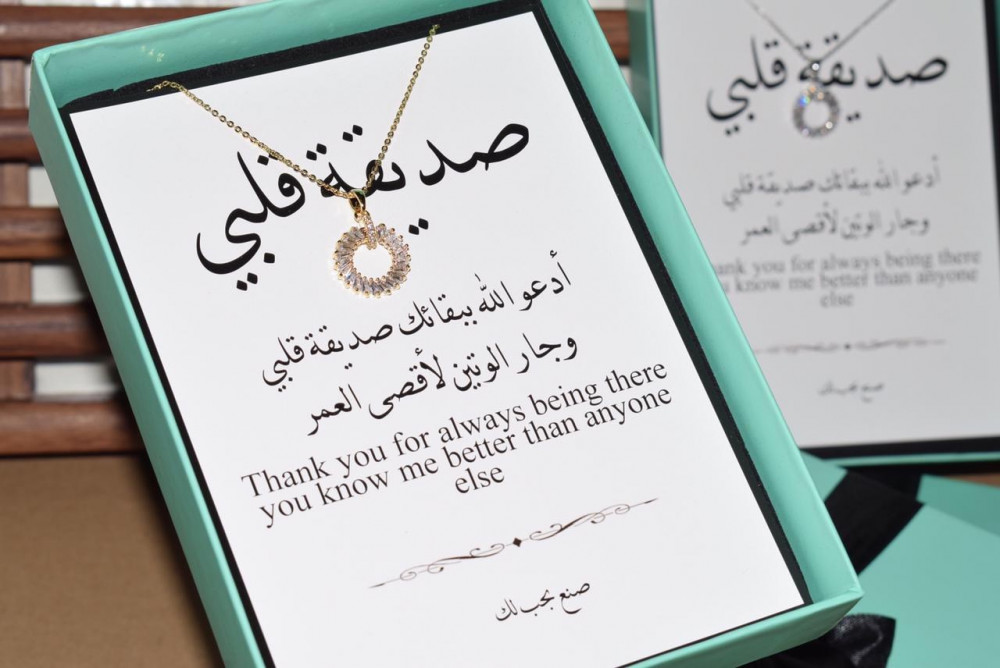 صديقة قلبي
أدعو الله ببقائك صديقة قلبي
وجار الوتين لأقصى العمر
Thank you for always being there
you know me better than anyone
else
صنع بحب لك
صديقة قلبي
أدعو الله ببقائك صديقة قلبي
وجار الوتين لأقصى العمر
you for always being there
know me better than anyone
else
صنع بحب لك